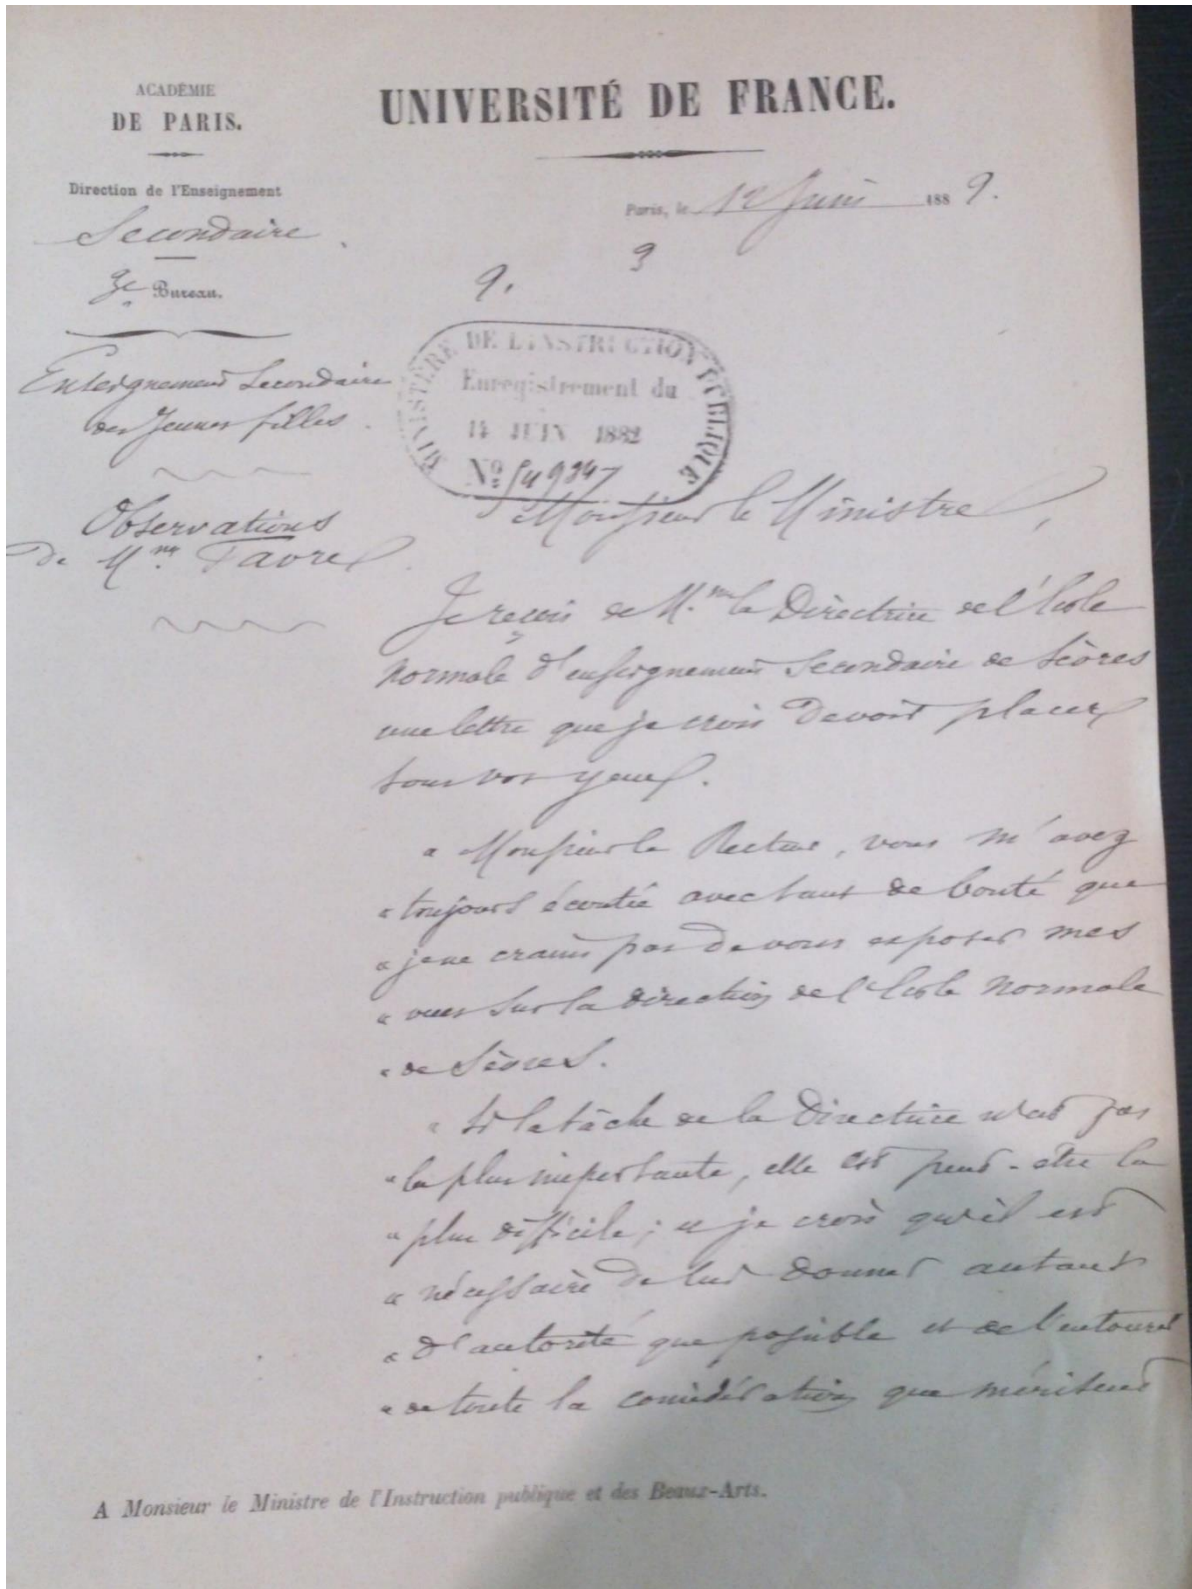 ACADÉMIE
DE PARIS.
Direction de l'Enseignement
Secondaire.
3e Bureau.
Enseignement Secondaire
des Jeunes filles.
Observations
de Mme Favre.
UNIVERSITÉ DE FRANCE.
Paris, le 12 Juin 188
9.
MINISTÈRE DE L'INSTRUCTION PUBLIQUE
Enregistrement du
14 JUIN 1882
No
Monsieur le Ministre,
Je reçois de Mme la Directrice de l'École
normale d'enseignement Secondaire de Sèvres
une lettre que je crois devoir placer
sous vos yeux.
« Monsieur le Recteur, vous m'avez
« toujours écoutée avec tant de bonté que
« je ne crains pas de vous exposer mes
« vues sur la direction de l'École normale
« de Sèvres.
« Si la tâche de la Directrice n'est pas
« la plus importante, elle est peut-être la
« plus difficile; et je crois qu'il est
« nécessaire de lui donner autant
« d'autorité que possible et de l'entourer
« de toute la considération que méritent
A Monsieur le Ministre de l'Instruction publique et des Beaux-Arts.